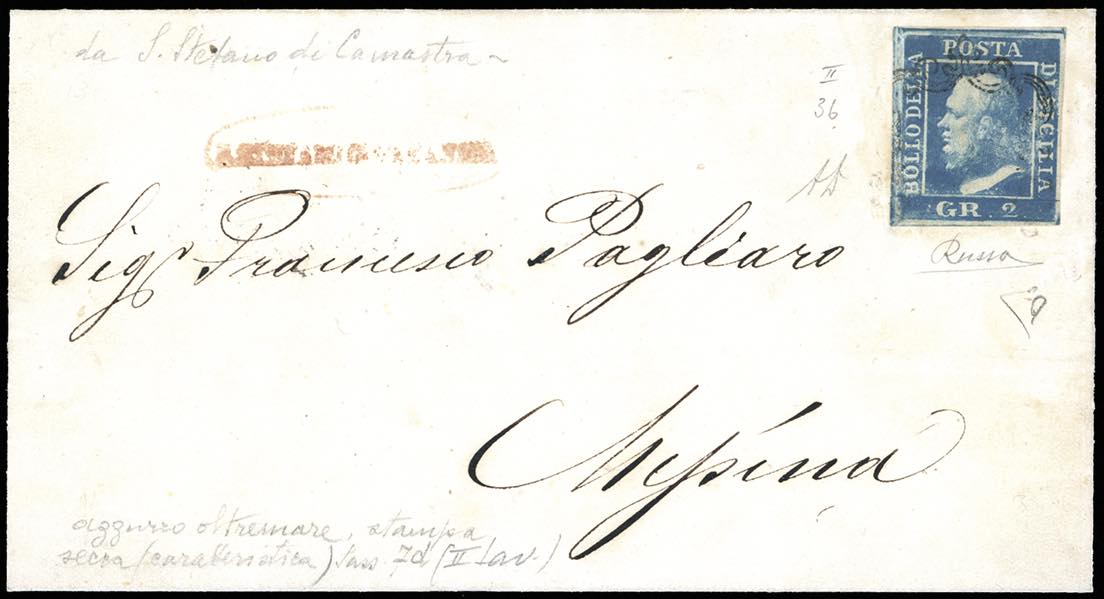 da S. Stefano di Camastra
POSTA
BOLLO DELLA
DI SICILIA
GR. 2
II
36
Sigr Francesco Pagliaro
Russo
Messina
azzurro oltremare, stampa
secca (caratteristica) Sass 7d (II tav.)